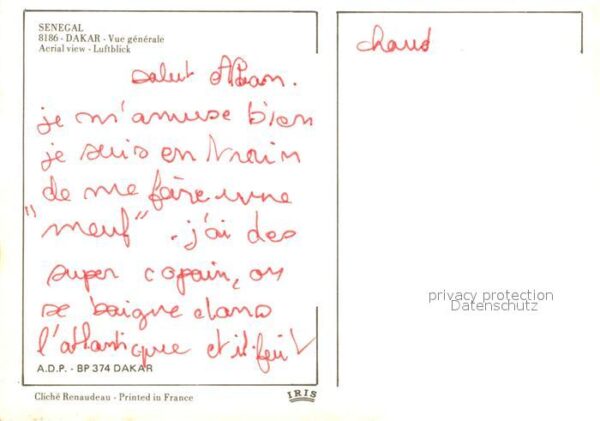 SENEGAL
8186 - DAKAR - Vue générale
Aerial view - Luftblick
salut
je m'amuse bien
je suis en train
de me faire une
"meuf" . j'ai des
super copain, on
se baigne dans
l'atlantique et il fait
A.D.P. - BP 374 DAKAR
Cliché Renaudeau - Printed in France
IRIS
chaud
privacy protection
Datenschutz